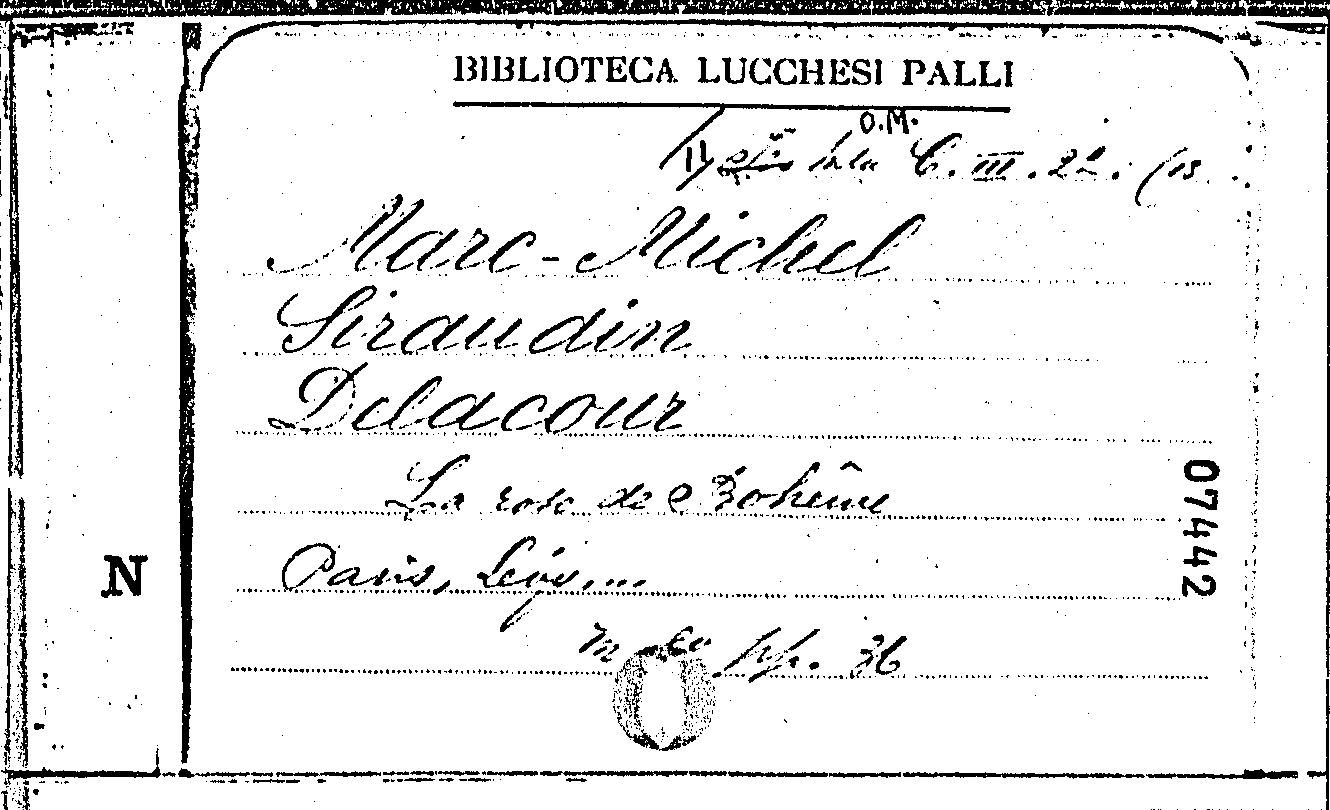 BIBLIOTECA LUCCHESI PALLI
O.M.
Sala C. III. 22. (13
Marc-Michel
Siraudin
Delacour
La rose de Bohême
Paris, Lévy....
in 80 pp. 36
07442
N